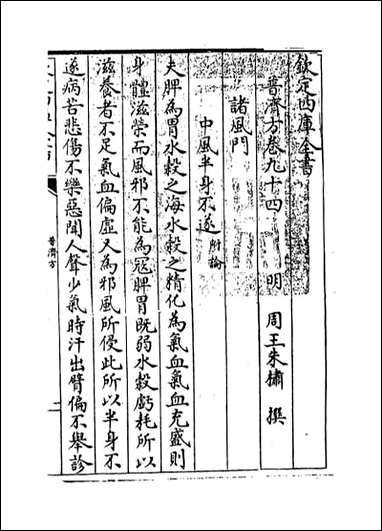 欽定四庫全書
普濟方卷九十四
明 周王朱橚 撰
諸風門
中風半身不遂附論
夫脾為胃水穀之海水穀之精化為氣血氣血充盛則
身體滋榮而風邪不能為冦脾胃既弱水穀虧耗所以
滋養者不足氣血偏虛又為邪風所侵此所以半身不
遂病苦悲傷不樂惡聞人聲少氣時汗出臂偏不舉診
普濟方